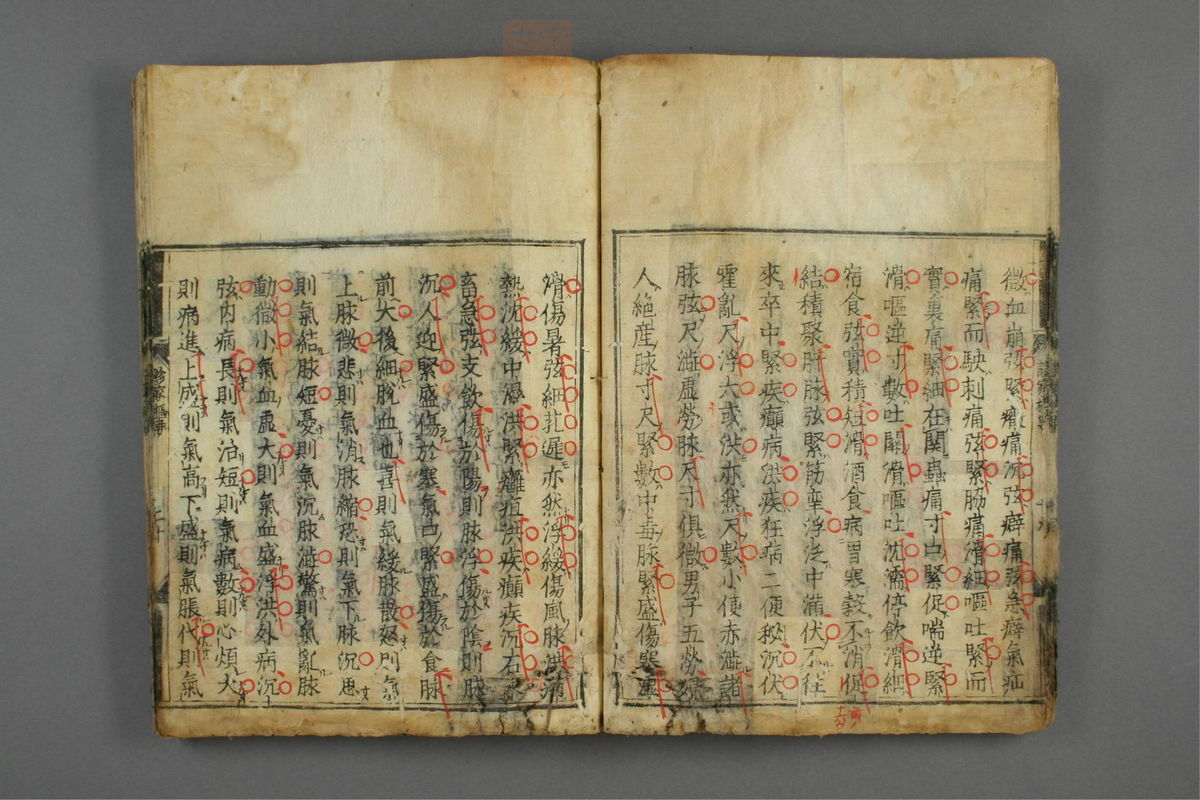 微血崩弦緊癥痛沉弦癖痛弦急癖氣疝
痛緊而駃刺痛弦緊脇痛滑細嘔吐緊而
實裏痛緊細在関蟲痛寸口緊促喘逆緊
滑嘔逆寸數吐関滑嘔吐沈濡停飲滑細
宿食弦實積短滑酒食病胃寒穀不消促
結積聚肝脉弦緊筋攣浮泛中滿伏不往
來卒中緊疾癲病洪疾狂病二便秘沉伏
霍亂尺浮大或洪亦然尺數小便赤澁諸
脉弦尺澁虛勞脉尺寸俱微男子五勞婦
人絶産脉寸尺緊數中毒脉緊盛傷寒
滑傷暑弦細芤遲亦然浮緩傷風脉洪
熱沈緩中濕洪緊癰疽洪疾癲疾沉石
畜急弦支飲傷於陽則脉浮傷於陰則脉
沉人迎緊盛傷於寒氣口緊盛傷於食脉
前大後細脫血也喜則氣緩脉散怒則氣
上脉微悲則氣消脉縮恐則氣下脉沉思
則氣結脉短憂則氣沉脉澁驚則氣亂脉
動微小氣血虛大則氣血盛浮洪外病沉
弦内病長則氣治短則氣病數則心煩大
則病進上成則氣高下盛則氣脹代則氣